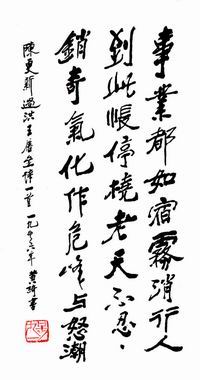 事業都如宿霧消行人
到此悵停橈老天不忍
銷奇氣化作危峰与怒潮
陳更新過洪王一首一九年書